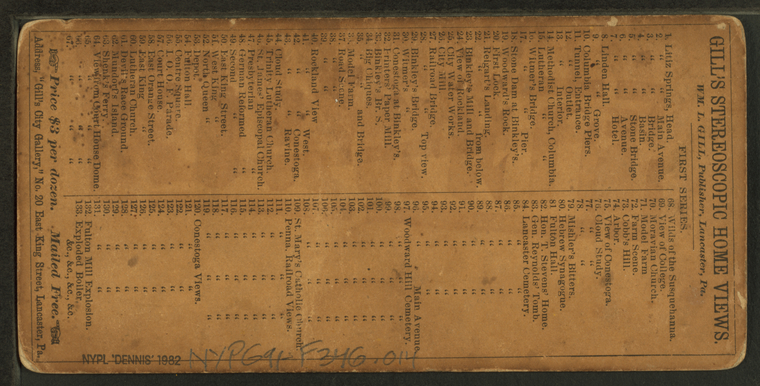 GILL'S STEREOSCOPIC HOME VIEWS.
WM. L. GILL, Publisher, Lancaster, Pa.
FIRST SERIES.
1. Litiz Springs, Head.
2. " " Main Avenue.
3. " " Bridge.
4. " " Basin.
5. " " Stone Bridge.
6. " " Avenue.
7. " " Hotel.
8. Linden Hall.
9. " " Grove.
10. Columbia Bridge Piers.
11. Tunnel, Entrance.
12. " Outlet.
13. " Interior.
14. Methodist Church, Columbia.
15. Lutheran " "
16. Wilmer's Bridge.
17. " " Pier.
18. Stone Dam at Binkley's.
19. Woodward's Rock.
20. First Lock.
21. Reigart's Landing.
22. " " from below.
23. Binkley's Mill and Bridge.
24. View of Rockland.
25. City Water Works.
26. City Mill.
27. Railroad Bridge.
28. " " Top view.
29. Binkley's Bridge.
30. Wilmer's "
31. Conestoga at Binkley's.
32. Printers' Paper Mill.
33. Binkley's
34. Big Conques.
35. " " and Bridge.
36. Model Farm.
37. Road Scene.
38. " "
39. " "
40. Rockland View
41. " " West.
42. " " Conestoga.
43. " " Ravine.
44. Cloud Study.
45. Trinity Lutheran Church.
46. St. James' Episcopal Church.
47. Presbyterian "
48. German Reformed "
49. Second "
50. East King Street.
51. West King "
52. North Queen "
53. Market "
54. Fulton Hall
55. Centre Square.
56. Masonic Parade.
57. Court House.
58. East Orange Street.
59. East King "
60. Lutheran Church.
61. Devil's Race Ground.
62. McCall's Island.
63. Shenk's Ferry.
64. View from Court House Dome.
65. " "
66. " "
67. " "
68. Wilds of the Susquehanna.
69. View of College.
70. Moravian Church.
71. Model Farm.
72. Farm Scene.
73. Cobb's Hill.
74. Arbor.
75. View of Conestoga.
76. Cloud Study.
77. " "
78. " "
79. Mishler's Bitters.
80. Hebrew Synagogue.
81. Fulton Hall.
82. Hon. T. Stevens' Home.
83. Gen. Reynolds' Tomb.
84. Lancaster Cemetery.
85. " "
86. " "
87. " "
88. " "
89. " "
90. " "
91. " "
92. " "
93. " "
94. " "
95. " "
96. " " Main Avenue.
97. Woodward Hill Cemetery.
98. " "
99. " "
100. " "
101. " "
102. " "
103. " "
104. " "
105. " "
106. " "
107. " "
108. " "
109. St. Mary's Catholic Church.
110. Penna. Railroad Views.
111. " "
112. " "
113. " "
114. " "
115. " "
116. " "
117. " "
118. " "
119. " "
120. Conestoga Views.
121. " "
122. " "
123. " "
124. " "
125. " "
126. " "
127. " "
128. " "
129. " "
130. " "
131. " "
132. Fulton Mill Explosion.
133. Exploded Boiler.
&c., &c., &c., &c.
Price $3 per dozen. Mailed Free.
Address, "Gill's City Gallery," No. 20 East King Street, Lancaster, Pa.
NYPL 'DENNIS' 1982
NYPG91-F346.014